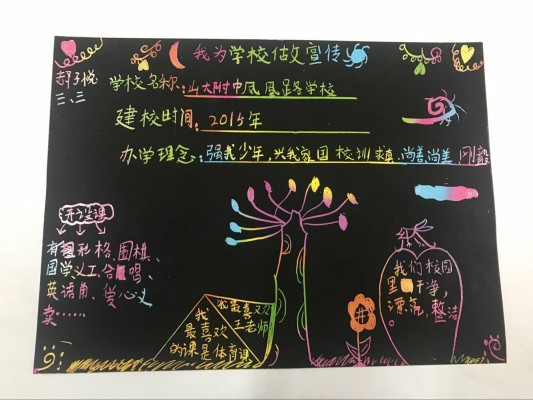 我为学校做宣传
郝子悦
三、三
学校名称:山大附中凤凰路学校
建校时间:2015年
办学理念:强我少年,兴我家国 校训 求真、尚善、尚美 刚毅
开设课
有 形 格、围棋、
国学义工、合 鸣、
英语角、爱心义
卖……
我最喜欢
王老师
我
最喜欢
的课是体育课
我们校园
里 干净,
漂亮,整洁